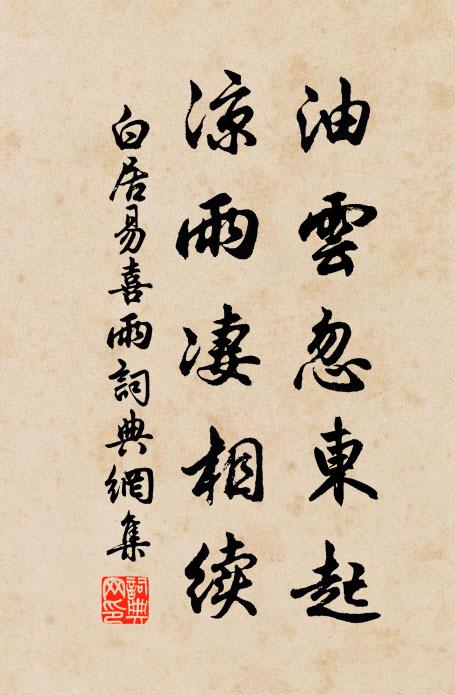 油雲忽東起
涼雨淒相續
白居易喜雨詞典網集
詞典网印